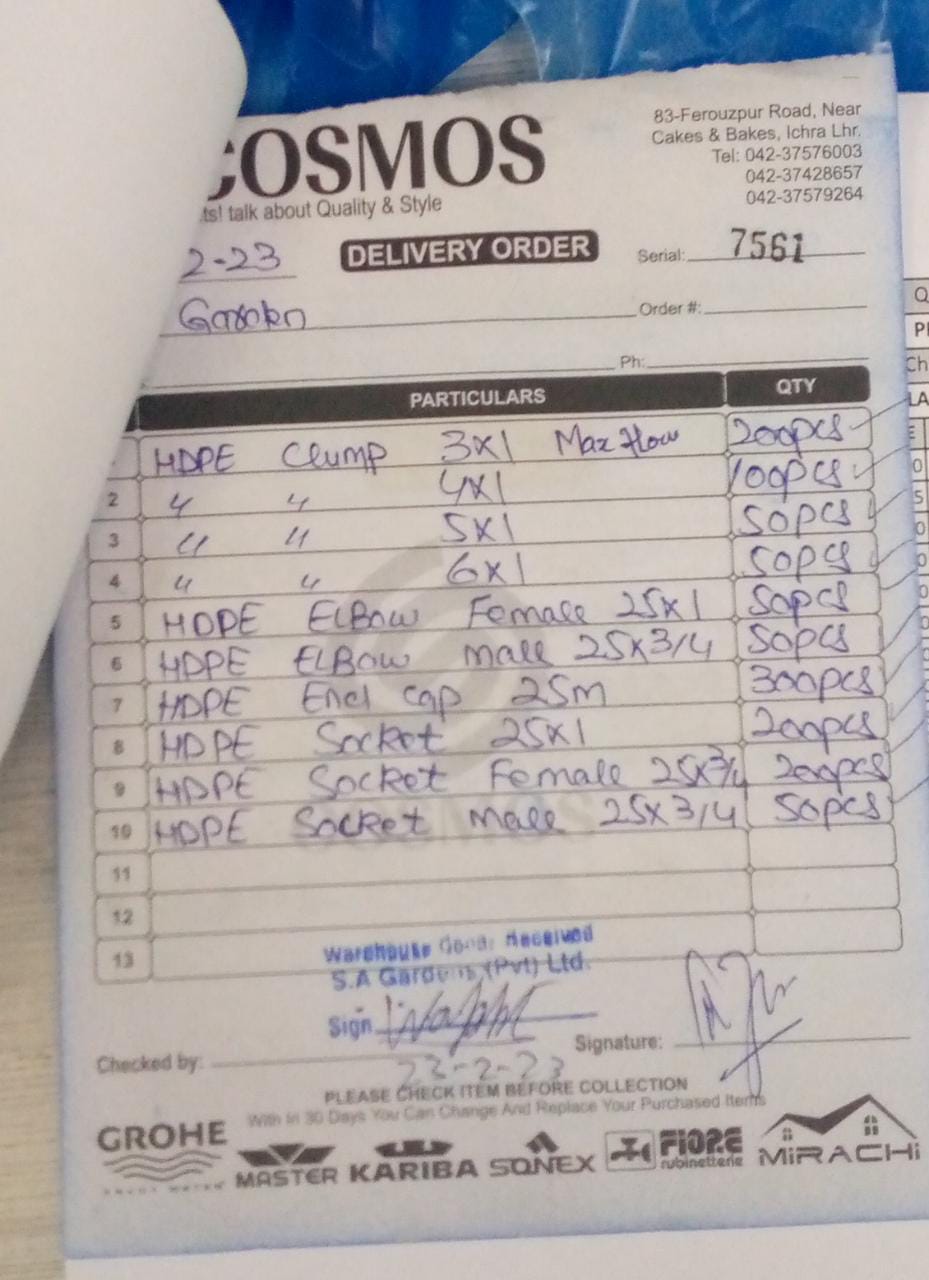 COSMOS
ts! talk about Quality & Style
83-Ferouzpur Road, Near
Cakes & Bakes, Ichra Lhr.
Tel: 042-37576003
042-37428657
042-37579264
2-23
DELIVERY ORDER
Serial: 7561
Order #:
Ph:
PARTICULARS QTY
HDPE Clump 3x1 Max flow 200pcs
2 " " 4x1 100pcs
3 " " 5x1 50pcs
4 " " 6x1 50pcs
5 HDPE ELBow Female 25x1 50pcs
6 HDPE ELBow male 25x3/4 50pcs
7 HDPE End cap 25m 300pcs
8 HDPE Socket 25x1 200pcs
9 HDPE Socket Female 25x3/4 200pcs
10 HDPE Socket male 25x3/4 50pcs
11
12
13
Warehouse Goods Received
S.A Gardens (Pvt) Ltd.
Sign
Signature:
Checked by:
23-2-23
PLEASE CHECK ITEM BEFORE COLLECTION
With In 30 Days You Can Change And Replace Your Purchased Items
GROHE
MASTER
KARIBA
SONEX
FIORE
rubinetterie
MiRACHi